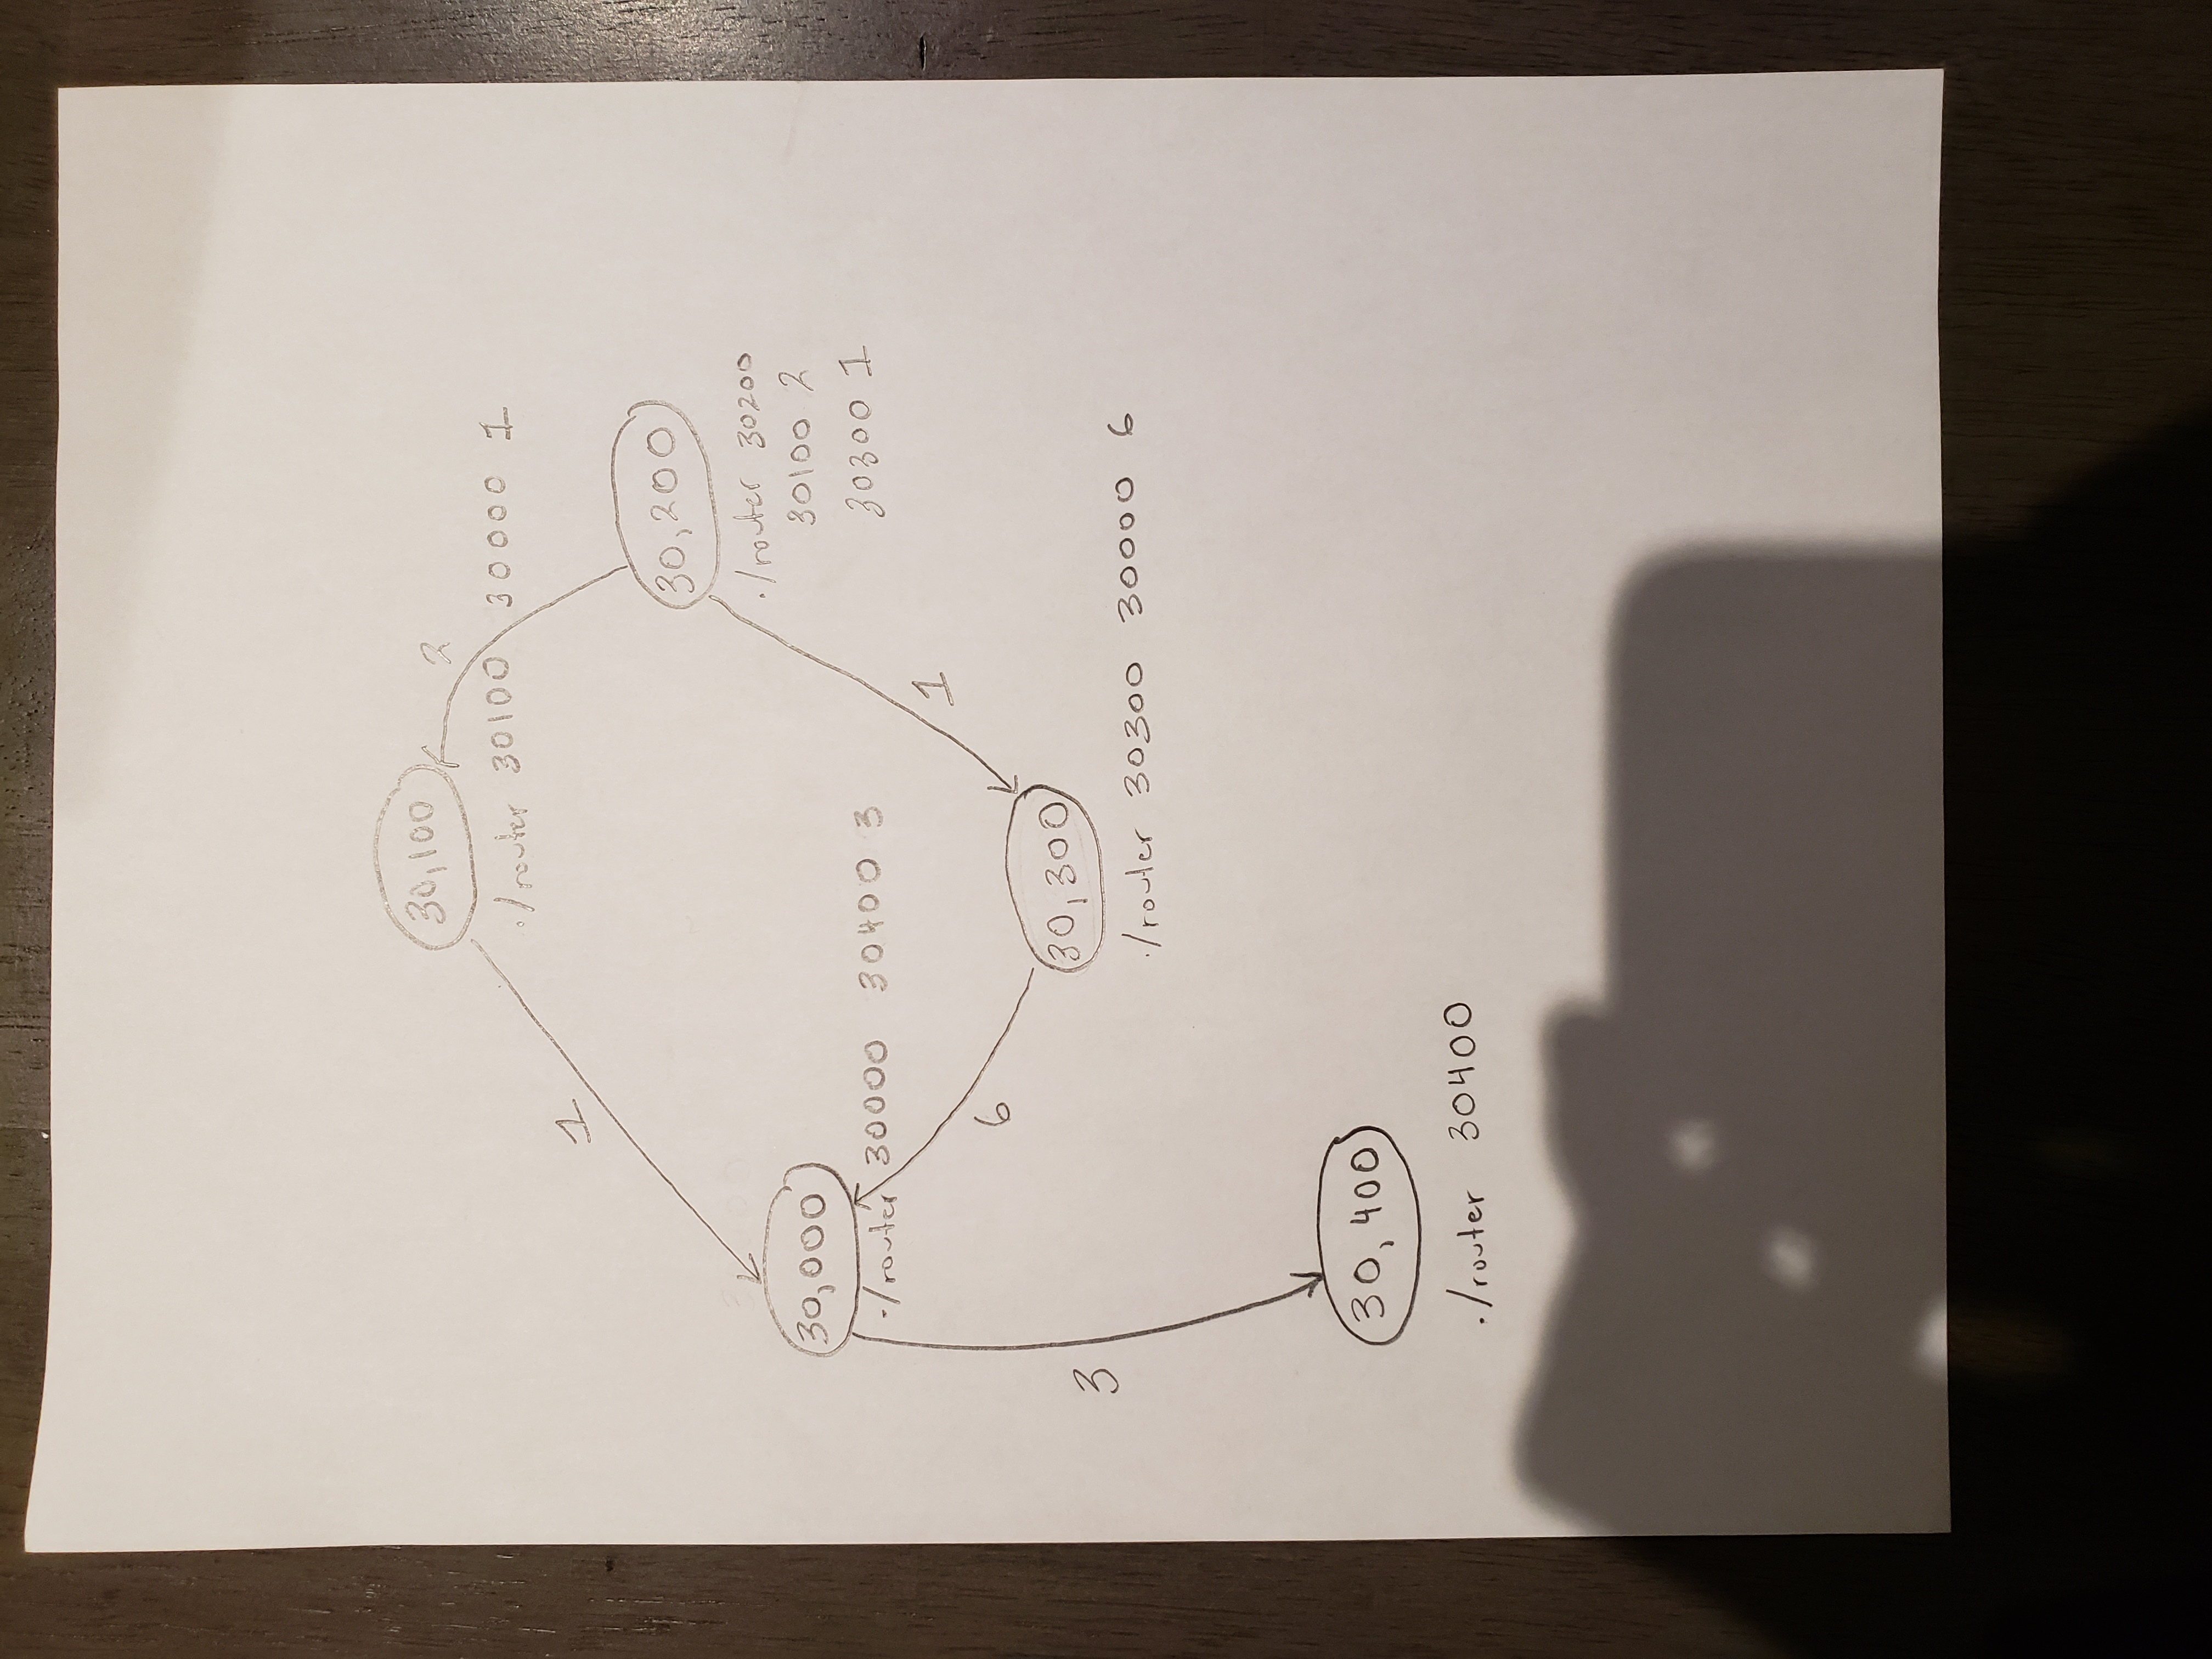 30,100
2
./router 30100 30000 1
1
30,200
./router 30200
30100 2
30300 1
30,000
./router 30000 30400 3
1
6
30,300
3
./router 30300 30000 6
30,400
./router 30400